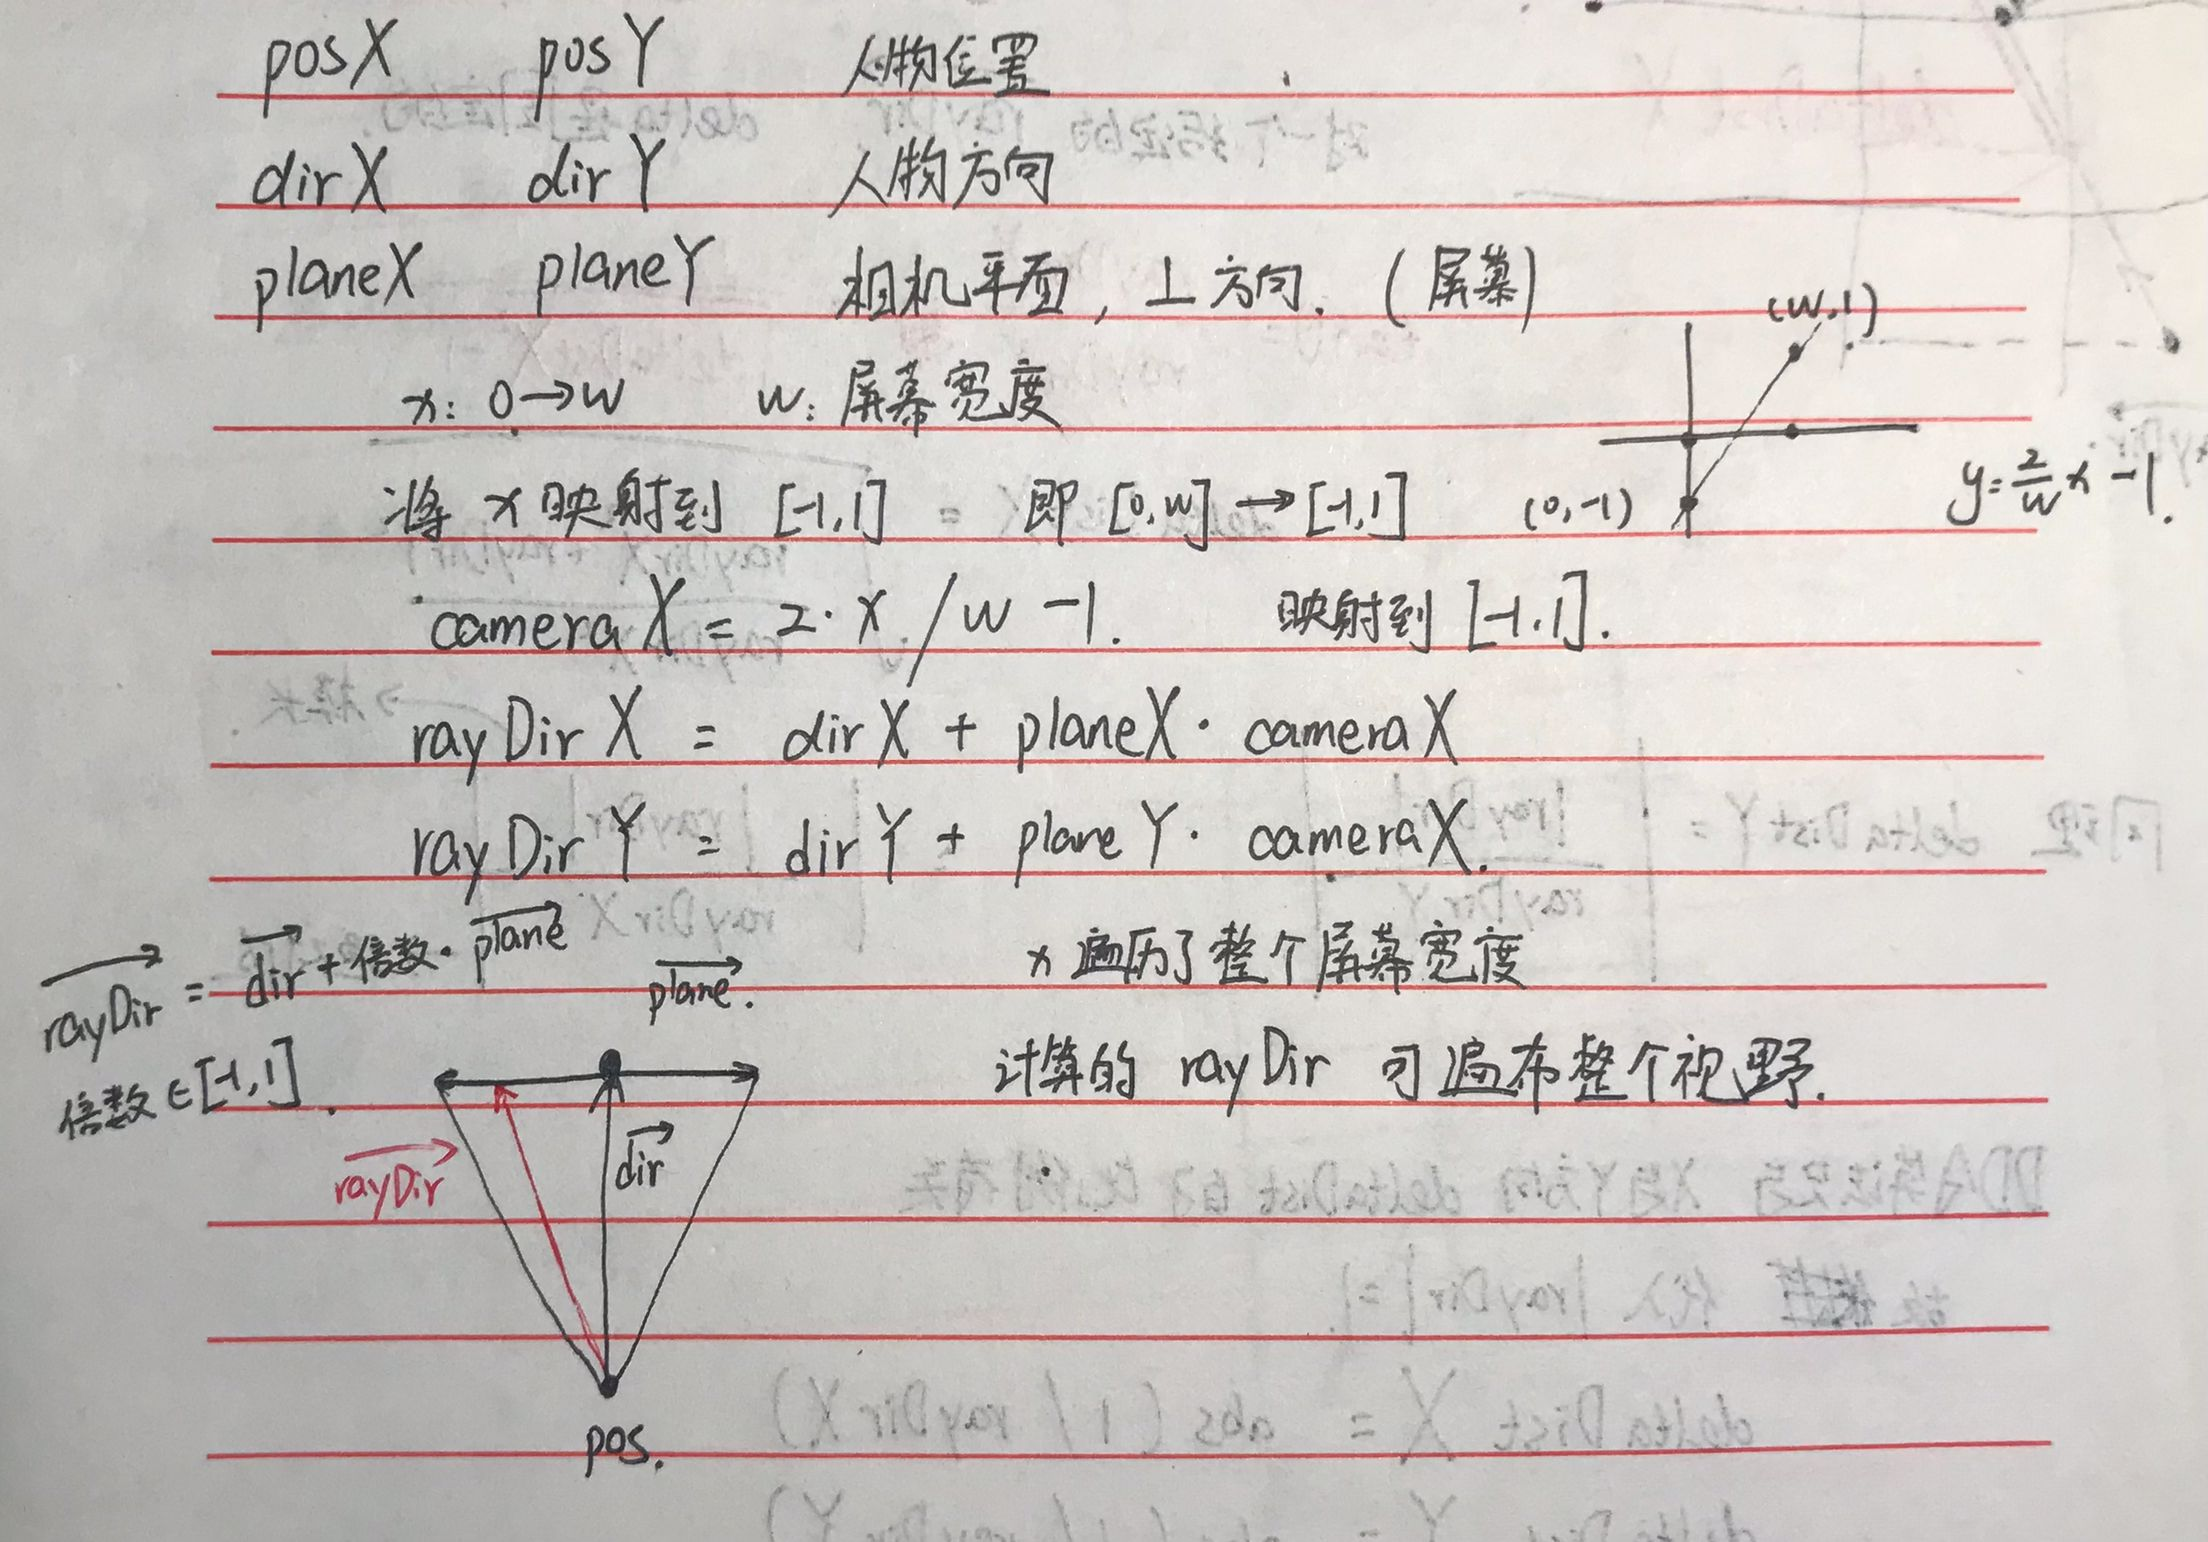 posX posY 人物位置
dirX dirY 人物方向
planeX planeY 相机平面，⊥方向．(屏幕)
x: 0→w w: 屏幕宽度
(w,1)
将 x 映射到 [-1,1] 即 [0,w]→[-1,1]
(0,-1)
y=2/w x -1.
cameraX = 2·x/w -1. 映射到 [-1,1].
rayDirX = dirX + planeX·cameraX
rayDirY = dirY + planeY·cameraX.
rayDir = dir + 倍数·plane
倍数∈[-1,1].
plane.
x 遍历了整个屏幕宽度
计算的 rayDir 可遍布整个视野.
rayDir
dir
pos.